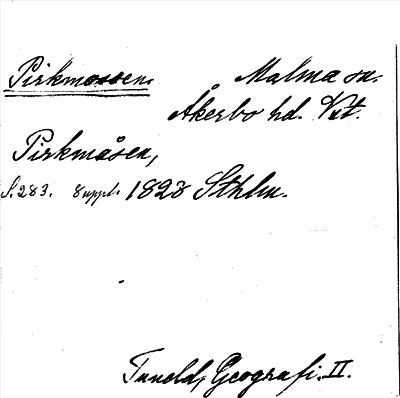 Pirkmossen. Malma sn.
Åkerbo hd. Vst.
Pirkmåsen,
S. 283. Suppl. 1828 Sthlm.
Tuneld, Geografi. II.